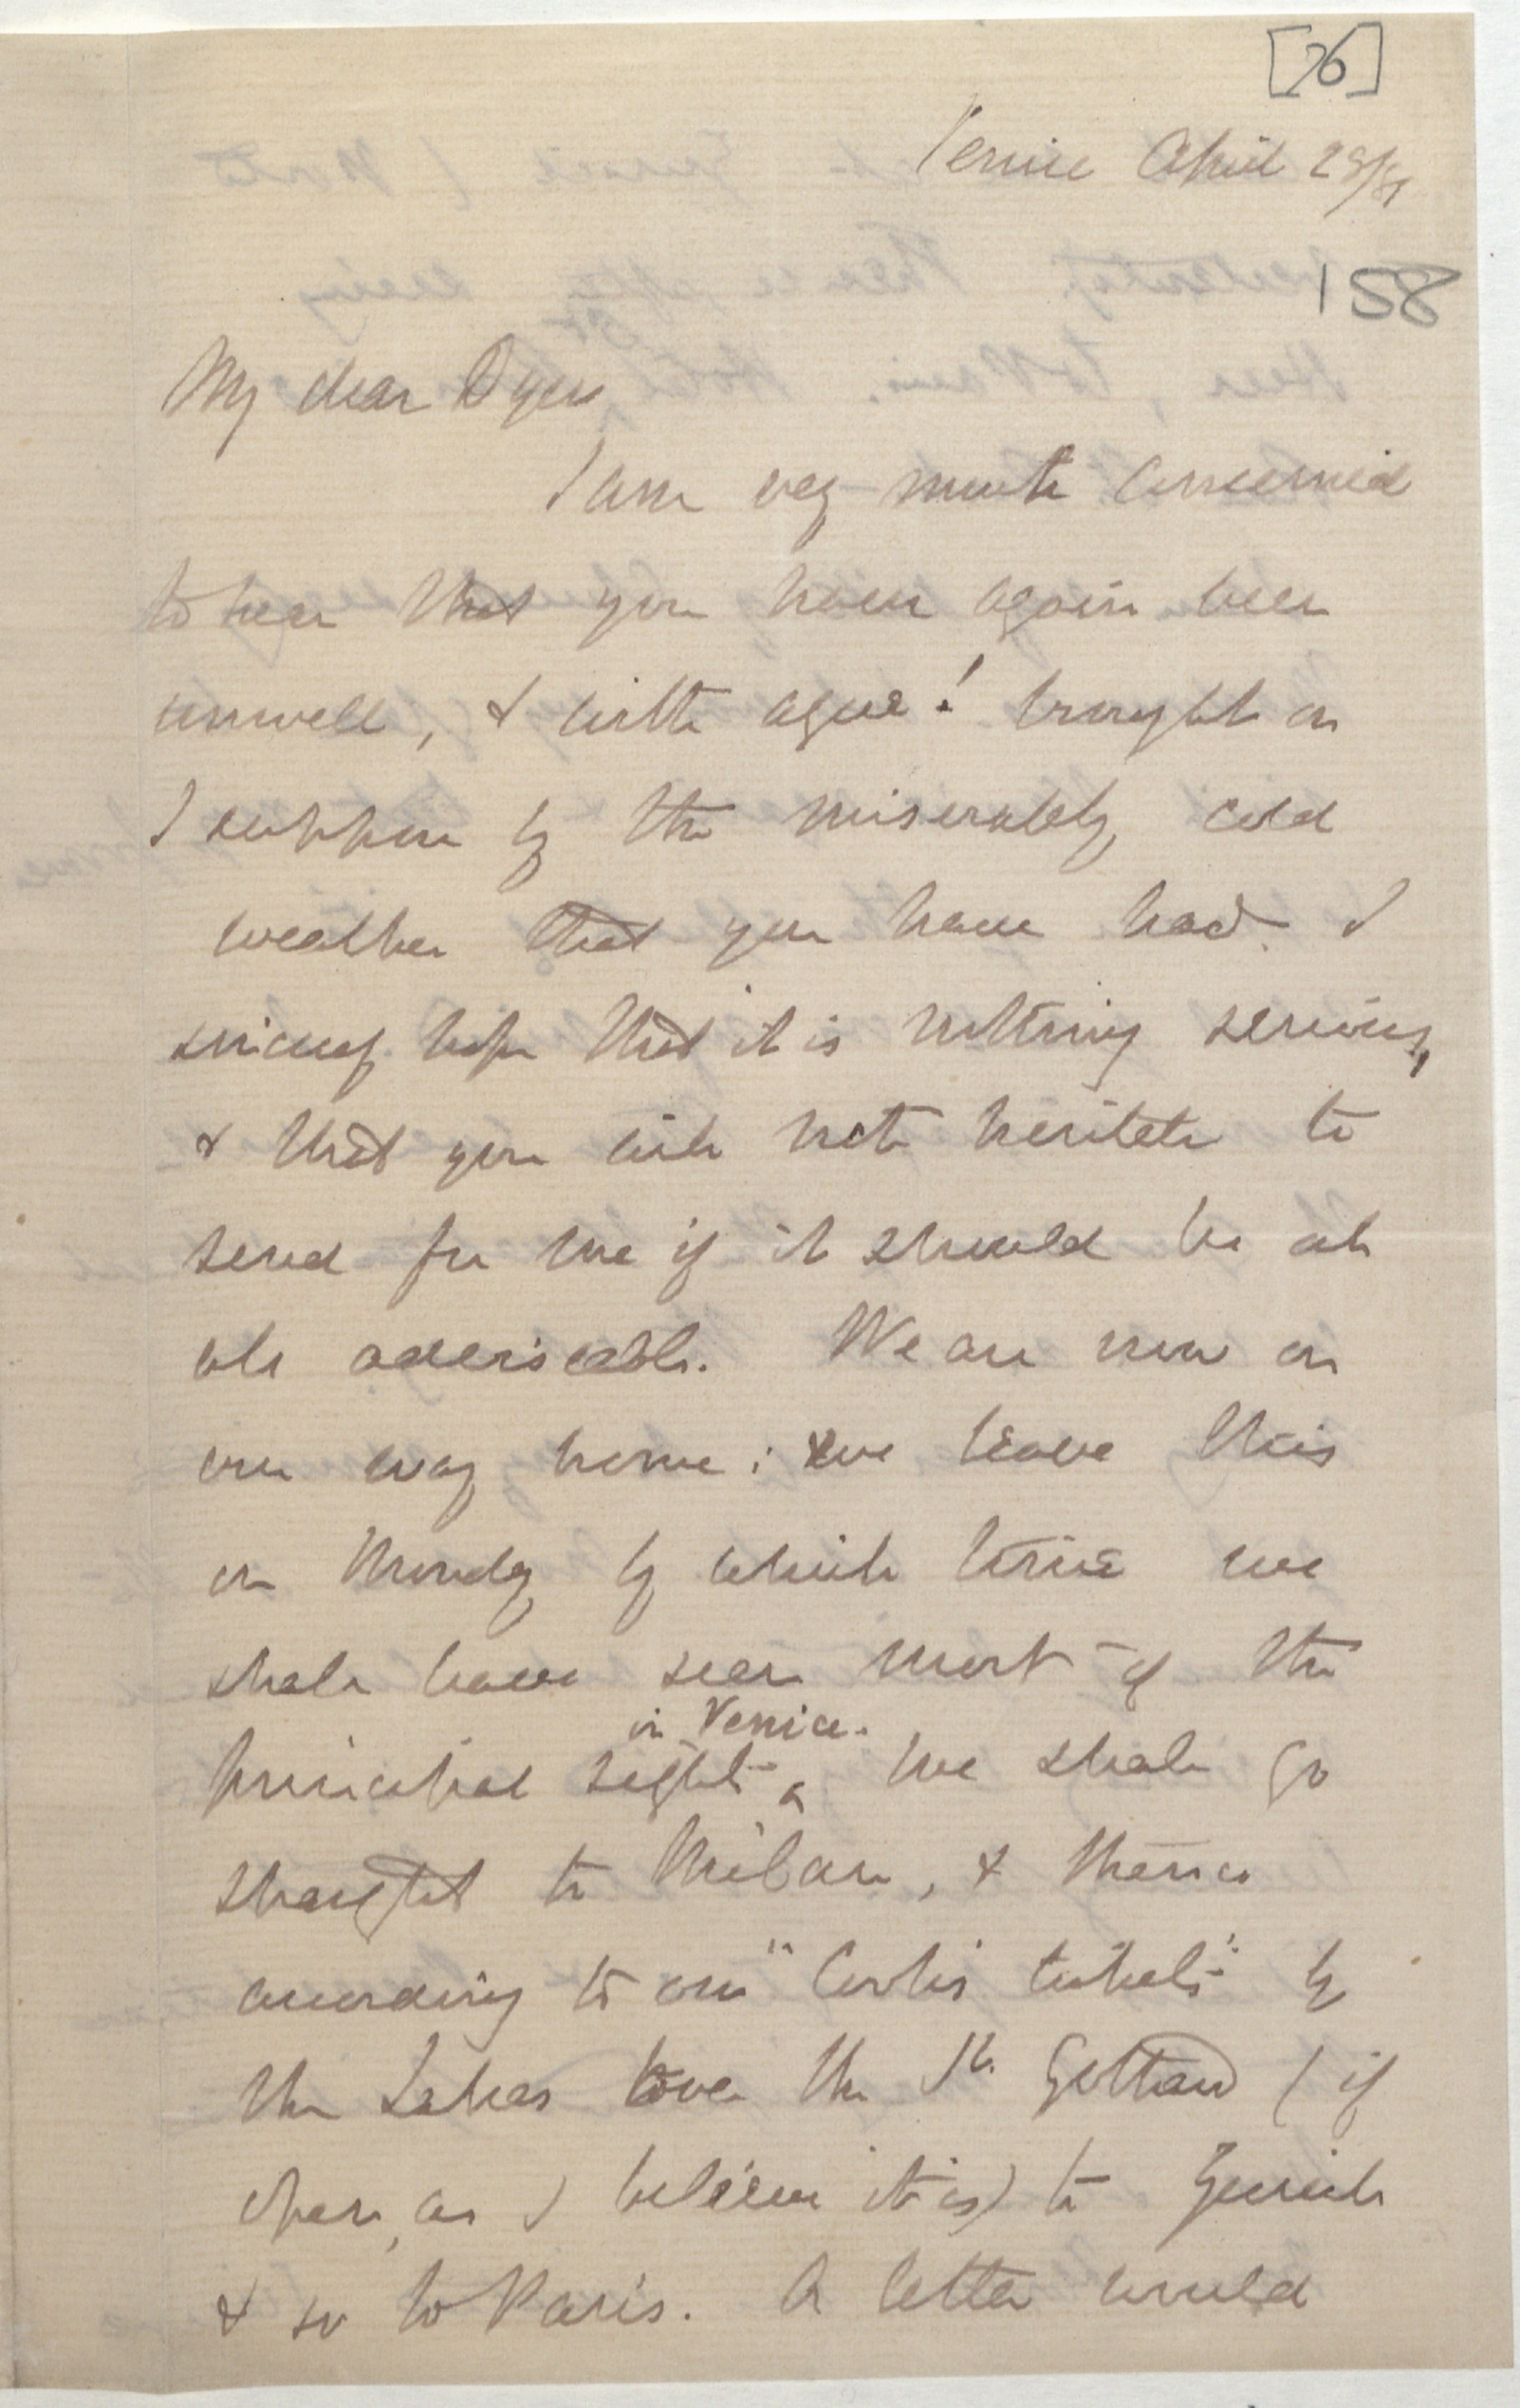 [76]
Venice April 28/81
158
My dear Dyer
I am very much concerned
to hear that you have again been
unwell, & with ague! brought on
I suppose by the miserably cold
weather that you have had. I
sincerely hope that it is nothing serious,
& that you will not hesitate to
send for me if it should be at
all adviseable. We are now on
our way home: & we leave this
on Monday by which time we
shall have seen most of the
in Venice.
principal sights ^ We shall go
straight to Milan, & thence
according to our "Cooks tickets" by
the Lakes over the St. Gottard (if
open, as I believe it is) to Zurich
& so to Paris. A letter would